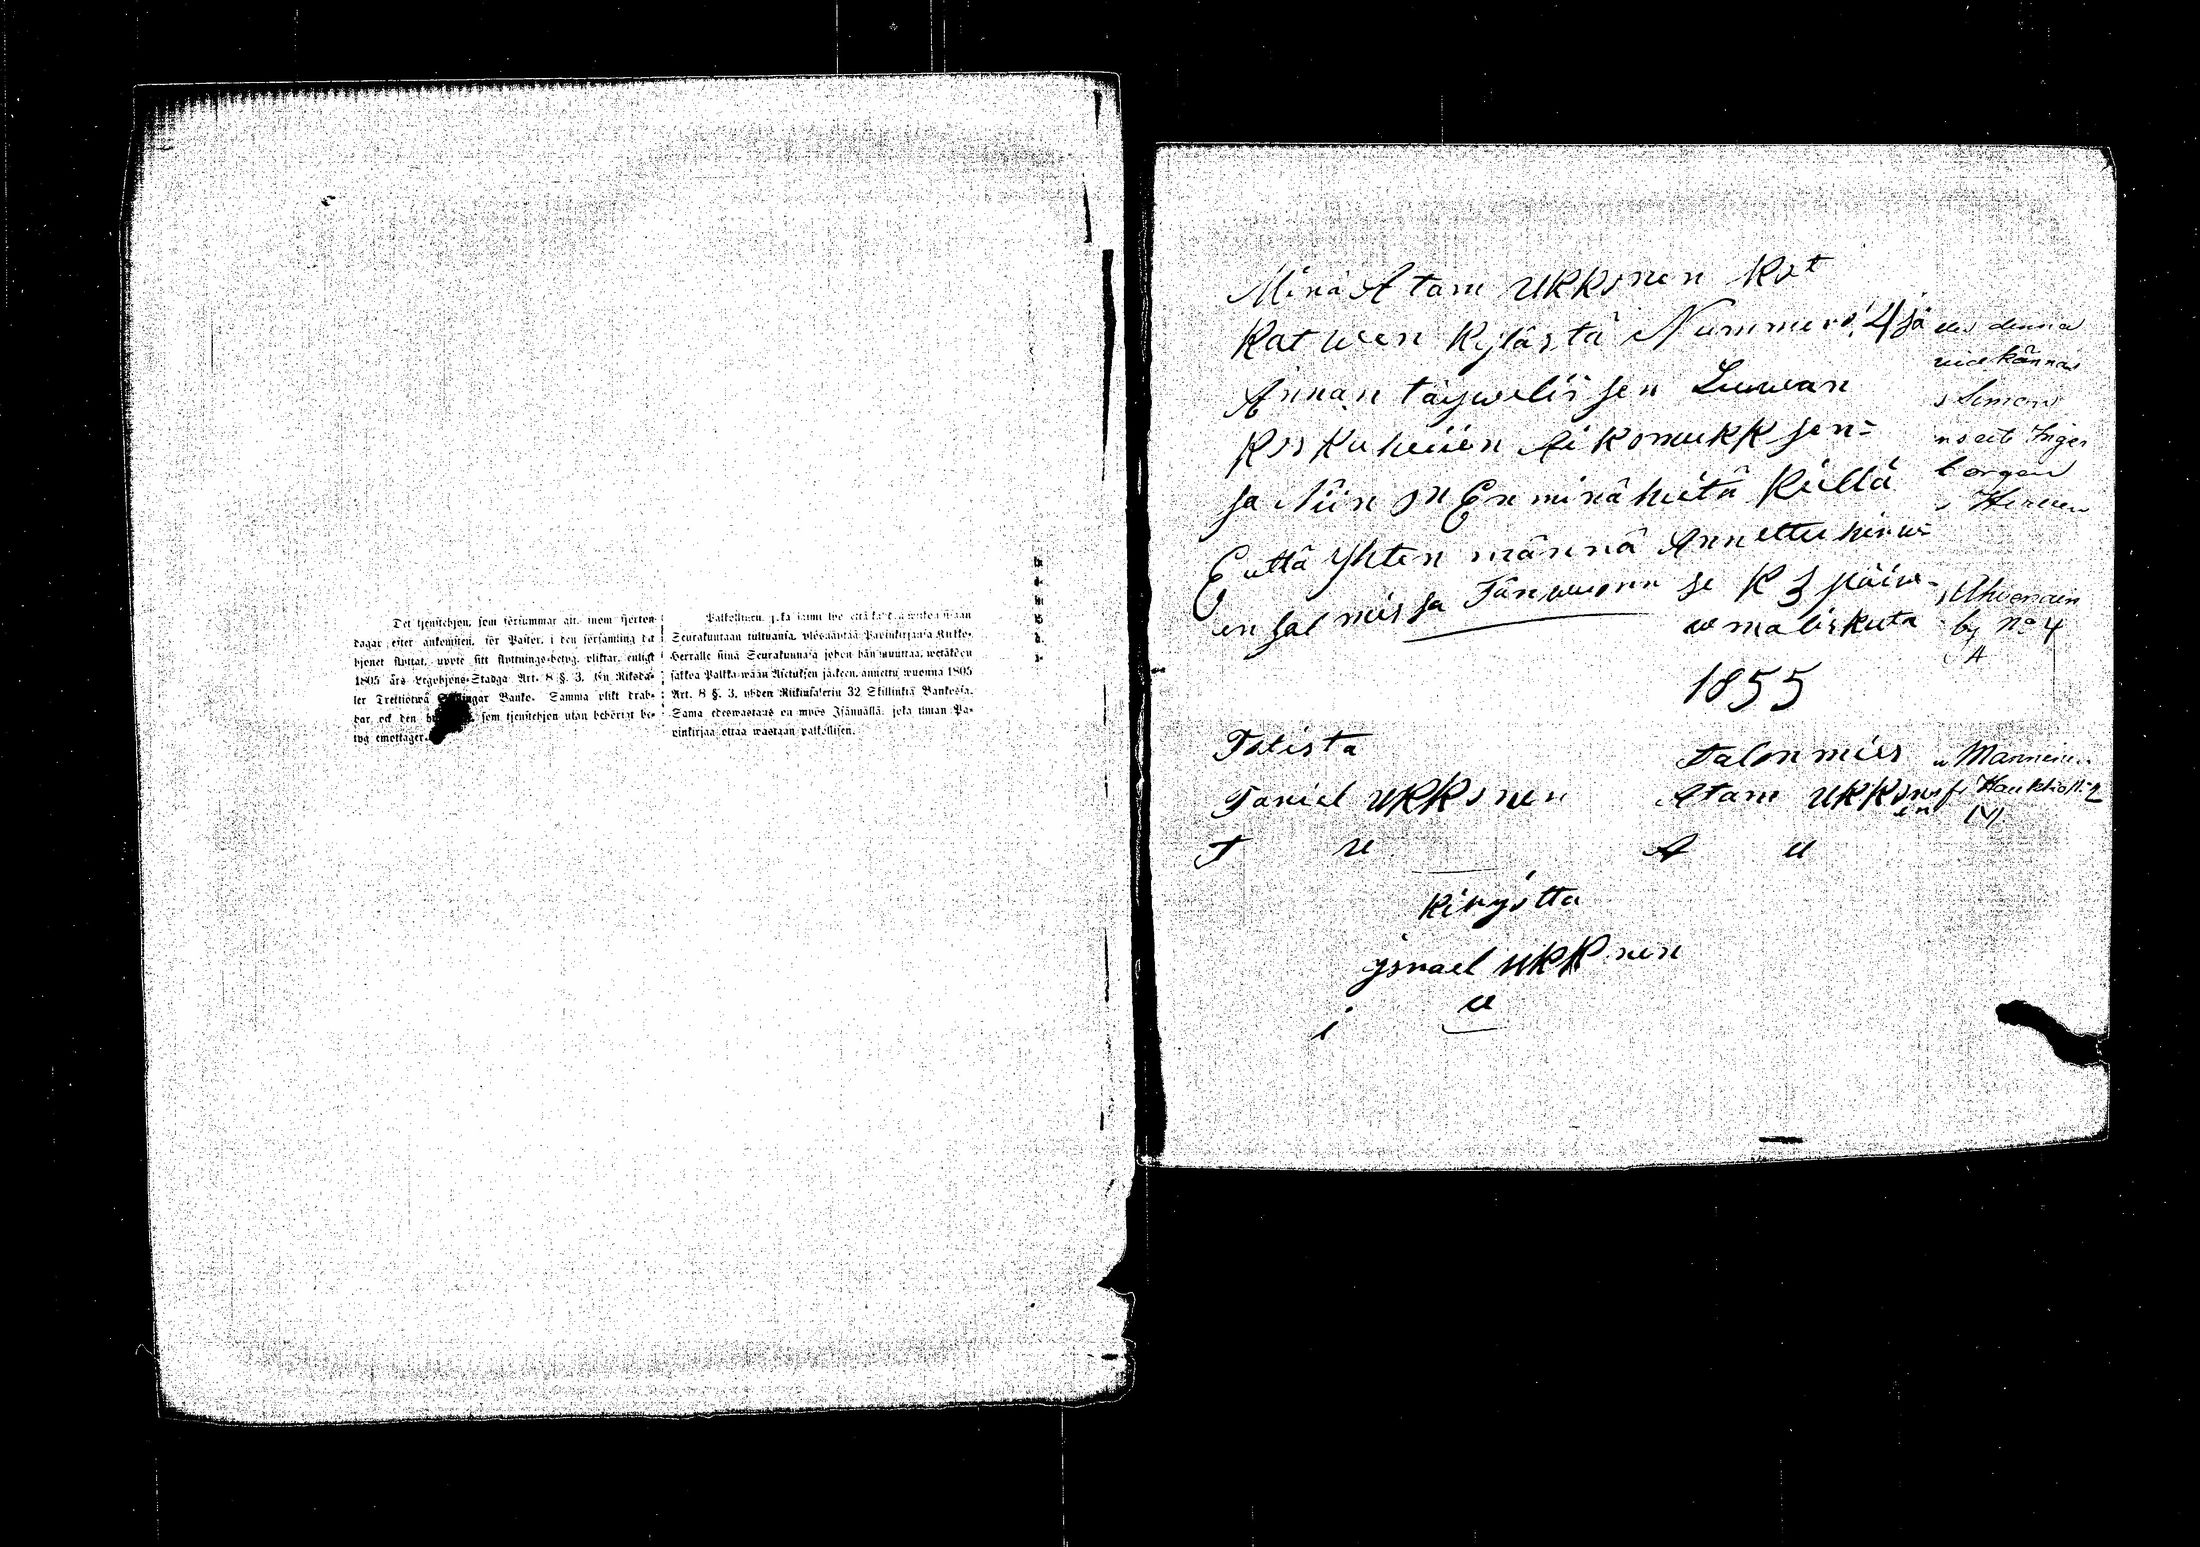 Det tjenstehjon, som försummar att, inom fjorton
dagar efter ankomsten, för Pastor, i den församling dit
hjonet flyttat, uppte sitt flyttnings-betyg, pliktar, enligt
1805 års Legohjons-Stadga Art. 8 §. 3. En Riksda-
ler Trettiotwå Skillingar Banko. Samma plikt drab-
bar ock den som tjenstehjon utan behörigt be-
tyg emottager.
Palkollinen, joka
Seurakuntaan tultuansa, ylösantaa Papinkirjansa Kirkko-
Herralle siinä Seurakunnasa johon hän muuttaa, wetäköön
sakkoa Palkka-wään Asetuksen jälkeen, annettu wuonna 1805
Art. 8 §. 3. yhden Riikintalerin 32 Skillinkiä Bankosa.
Sama edeswastaus on myös Isännällä, joka ilman Pa-
pinkirjaa ottaa wastaan palkollisen.
Minä Atam Ukkonen Kot
Kot ween Kylästä Nummero 4 jä
Annan täywelisen Luwan
Koskuheiien Aikomukksen=
ja Niin on En minä heitä Kiellä
Että Yhten männä Annettu hirw=
ensalmissa Tänwuonn se K 3 päiw-
w maliskuta
1855
Totista
Taniel Ukkonen
T u
talonmies
Atam Ukkonen
A u
Kirjotta
jsrael UKKnen
i u
denna
vid kännas
Simon
Inger
borgen
by No 4
A
Manninen
M